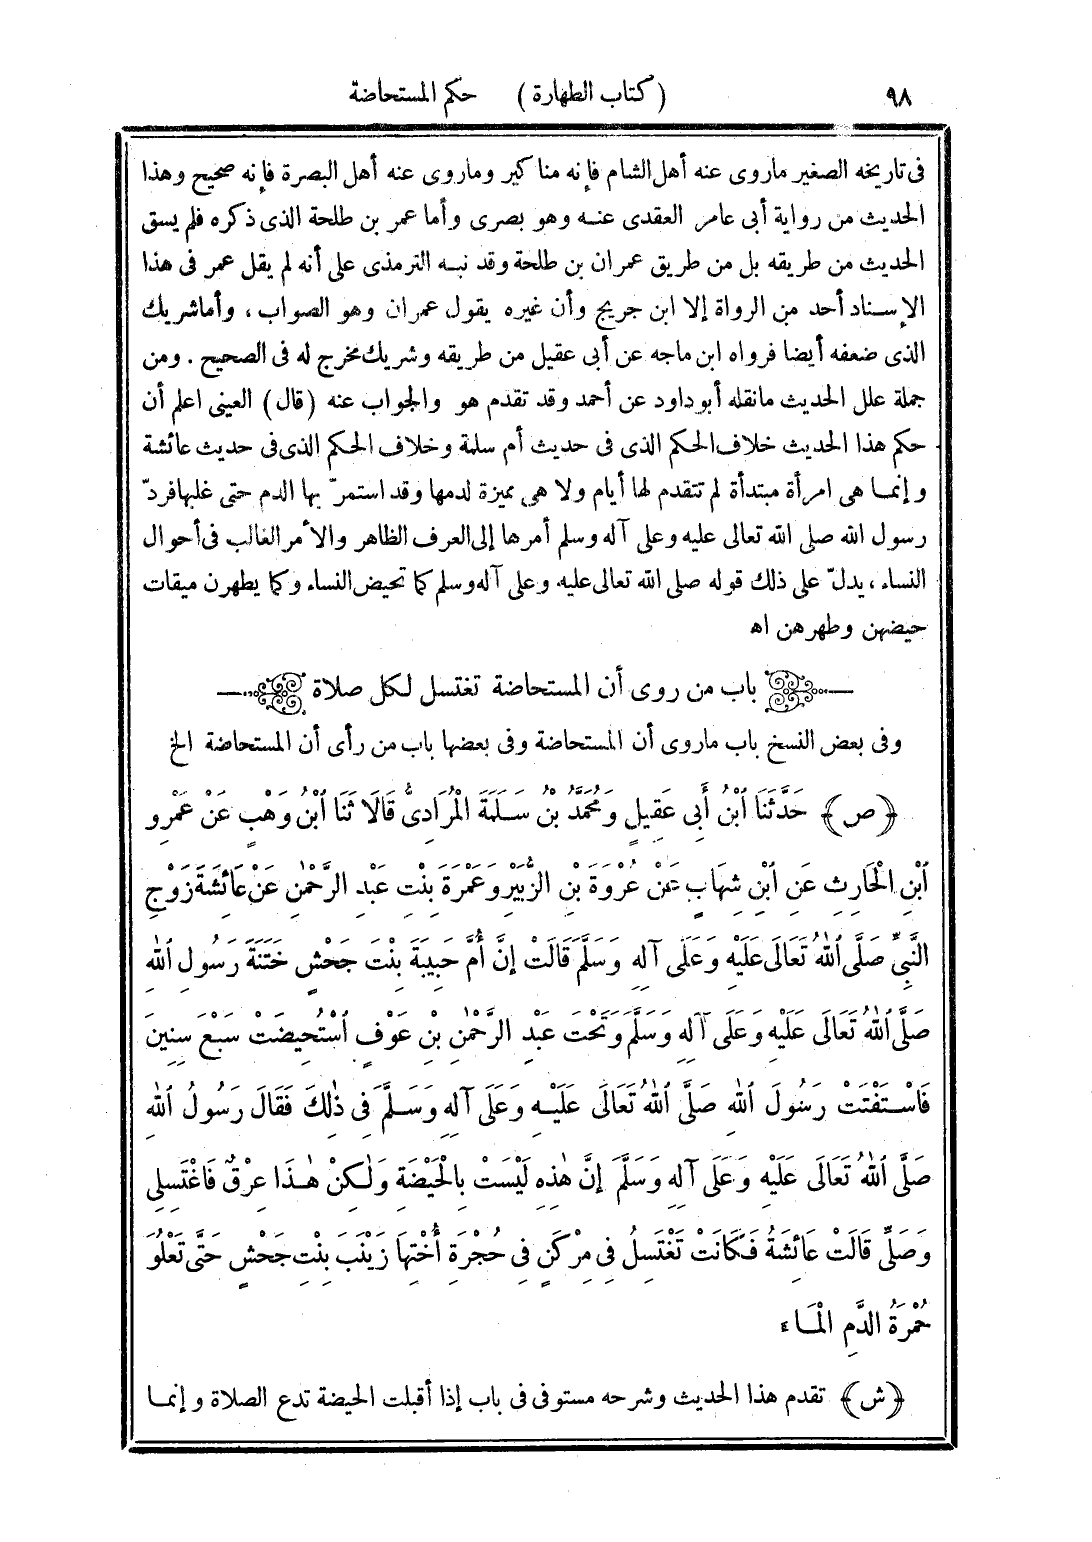 ٩٨ (كتاب الطهارة) حكم المستحاضة
فى تاريخه الصغير ماروى عنه أهل الشام فإنه مناكير وماروى عنه أهل البصرة فإنه صحيح وهذا
الحديث من رواية أبى عامر العقدى عنه وهو بصرى وأما عمر بن طلحة الذى ذكره فلم يسق
الحديث من طريقه بل من طريق عمران بن طلحة وقد نبه الترمذى على أنه لم يقل عمر فى هذا
الإسناد أحد من الرواة إلا ابن جريج وأن غيره يقول عمران وهو الصواب، وأما شريك
الذى ضعفه أيضا فرواه ابن ماجه عن أبى عقيل من طريقه وشريك مخرج له فى الصحيح. ومن
جملة علل الحديث مانقله أبوداود عن أحمد وقد تقدم هو والجواب عنه (قال) العينى اعلم أن
حكم هذا الحديث خلاف الحكم الذى فى حديث أم سلمة وخلاف الحكم الذى فى حديث عائشة
وإنما هى امرأة مبتدأة لم تتقدم لها أيام ولا هى مميزة لدمها وقد استمرّ بها الدم حتى غلبها فردّ
رسول الله صلى الله تعالى عليه وعلى آله وسلم أمرها إلى العرف الظاهر والأمر الغالب فى أحوال
النساء، يدلّ على ذلك قوله صلى الله تعالى عليه وعلى آله وسلم كما تحيض النساء وكما يطهرن ميقات
حيضهن وطهرهن اه
باب من روى أن المستحاضة تغتسل لكل صلاة
وفى بعض النسخ باب ماروى أن المستحاضة وفى بعضها باب من رأى أن المستحاضة الخ
﴿ص﴾ حَدَّثَنَا ٱبْنُ أَبِى عَقِيلٍ وَمُحَمَّدُ بْنُ سَلَمَةَ الْمُرَادِىُّ قَالَا ثَنَا ٱبْنُ وَهْبٍ عَنْ عَمْرِو
ٱبْنِ الْحَارِثِ عَنِ ٱبْنِ شِهَابٍ عَنْ عُرْوَةَ بْنِ الزُّبَيْرِ وَعَمْرَةَ بِنْتِ عَبْدِ الرَّحْمٰنِ عَنْ عَائِشَةَ زَوْجِ
النَّبِىِّ صَلَّى ٱللهُ تَعَالَى عَلَيْهِ وَعَلَى آلِهِ وَسَلَّمَ قَالَتْ إِنَّ أُمَّ حَبِيبَةَ بِنْتَ جَحْشٍ خَتَنَةَ رَسُولِ ٱللهِ
صَلَّى ٱللهُ تَعَالَى عَلَيْهِ وَعَلَى آلِهِ وَسَلَّمَ وَتَحْتَ عَبْدِ الرَّحْمٰنِ بْنِ عَوْفٍ ٱسْتُحِيضَتْ سَبْعَ سِنِينَ
فَاسْتَفْتَتْ رَسُولَ ٱللهِ صَلَّى ٱللهُ تَعَالَى عَلَيْهِ وَعَلَى آلِهِ وَسَلَّمَ فِى ذٰلِكَ فَقَالَ رَسُولُ ٱللهِ
صَلَّى ٱللهُ تَعَالَى عَلَيْهِ وَعَلَى آلِهِ وَسَلَّمَ إِنَّ هٰذِهِ لَيْسَتْ بِالْحَيْضَةِ وَلٰكِنْ هٰذَا عِرْقٌ فَاغْتَسِلِى
وَصَلِّى قَالَتْ عَائِشَةُ فَكَانَتْ تَغْتَسِلُ فِى مِرْكَنٍ فِى حُجْرَةِ أُخْتِهَا زَيْنَبَ بِنْتِ جَحْشٍ حَتَّى تَعْلُوَ
حُمْرَةُ الدَّمِ الْمَاءَ
﴿ش﴾ تقدم هذا الحديث وشرحه مستوفى فى باب إذا أقبلت الحيضة تدع الصلاة وإنما